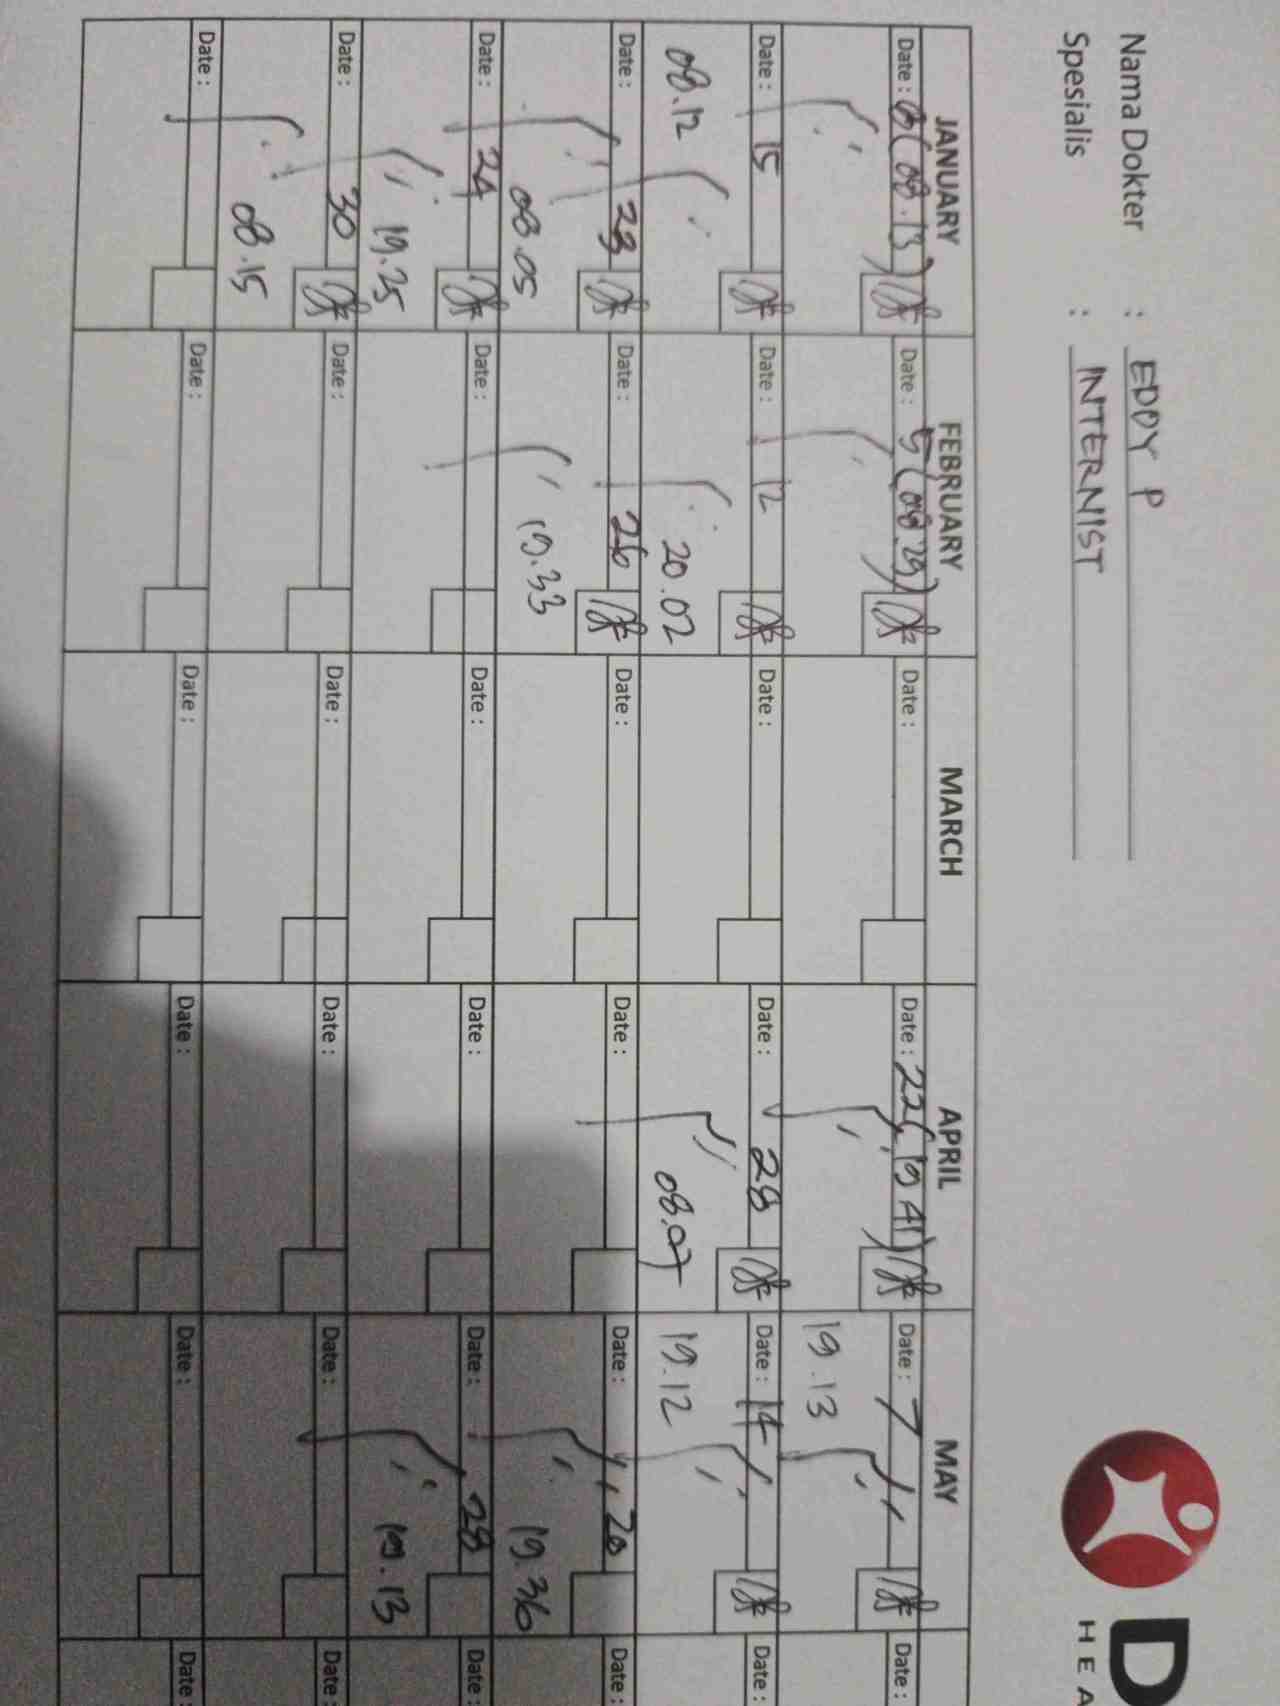 Nama Dokter : EDDY P
Spesialis : INTERNIST
D
HEA
JANUARY FEBRUARY MARCH APRIL MAY
Date : (08.13) Date : 5 (08.29) Date : Date : 22 (19.41) Date : 7 Date :
19.13
Date : 15 Date : 12 Date : Date : 28 Date : 14 Date :
08.12 20.02 08.07 19.12
Date : 23 Date : 26 Date : Date : Date : 20 Date :
08.05 19.33 19.36
Date : 24 Date : Date : Date : Date : 28
19.25 19.13
Date : 30 Date : Date : Date : Date : Date :
08.15
Date : Date : Date : Date : Date : Date :